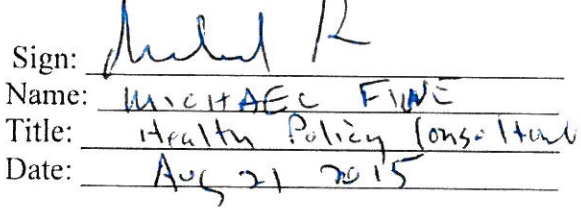 Sign:
Name: MICHAEL FINE
Title: Health Policy Consultant
Date: Aug 21 2015